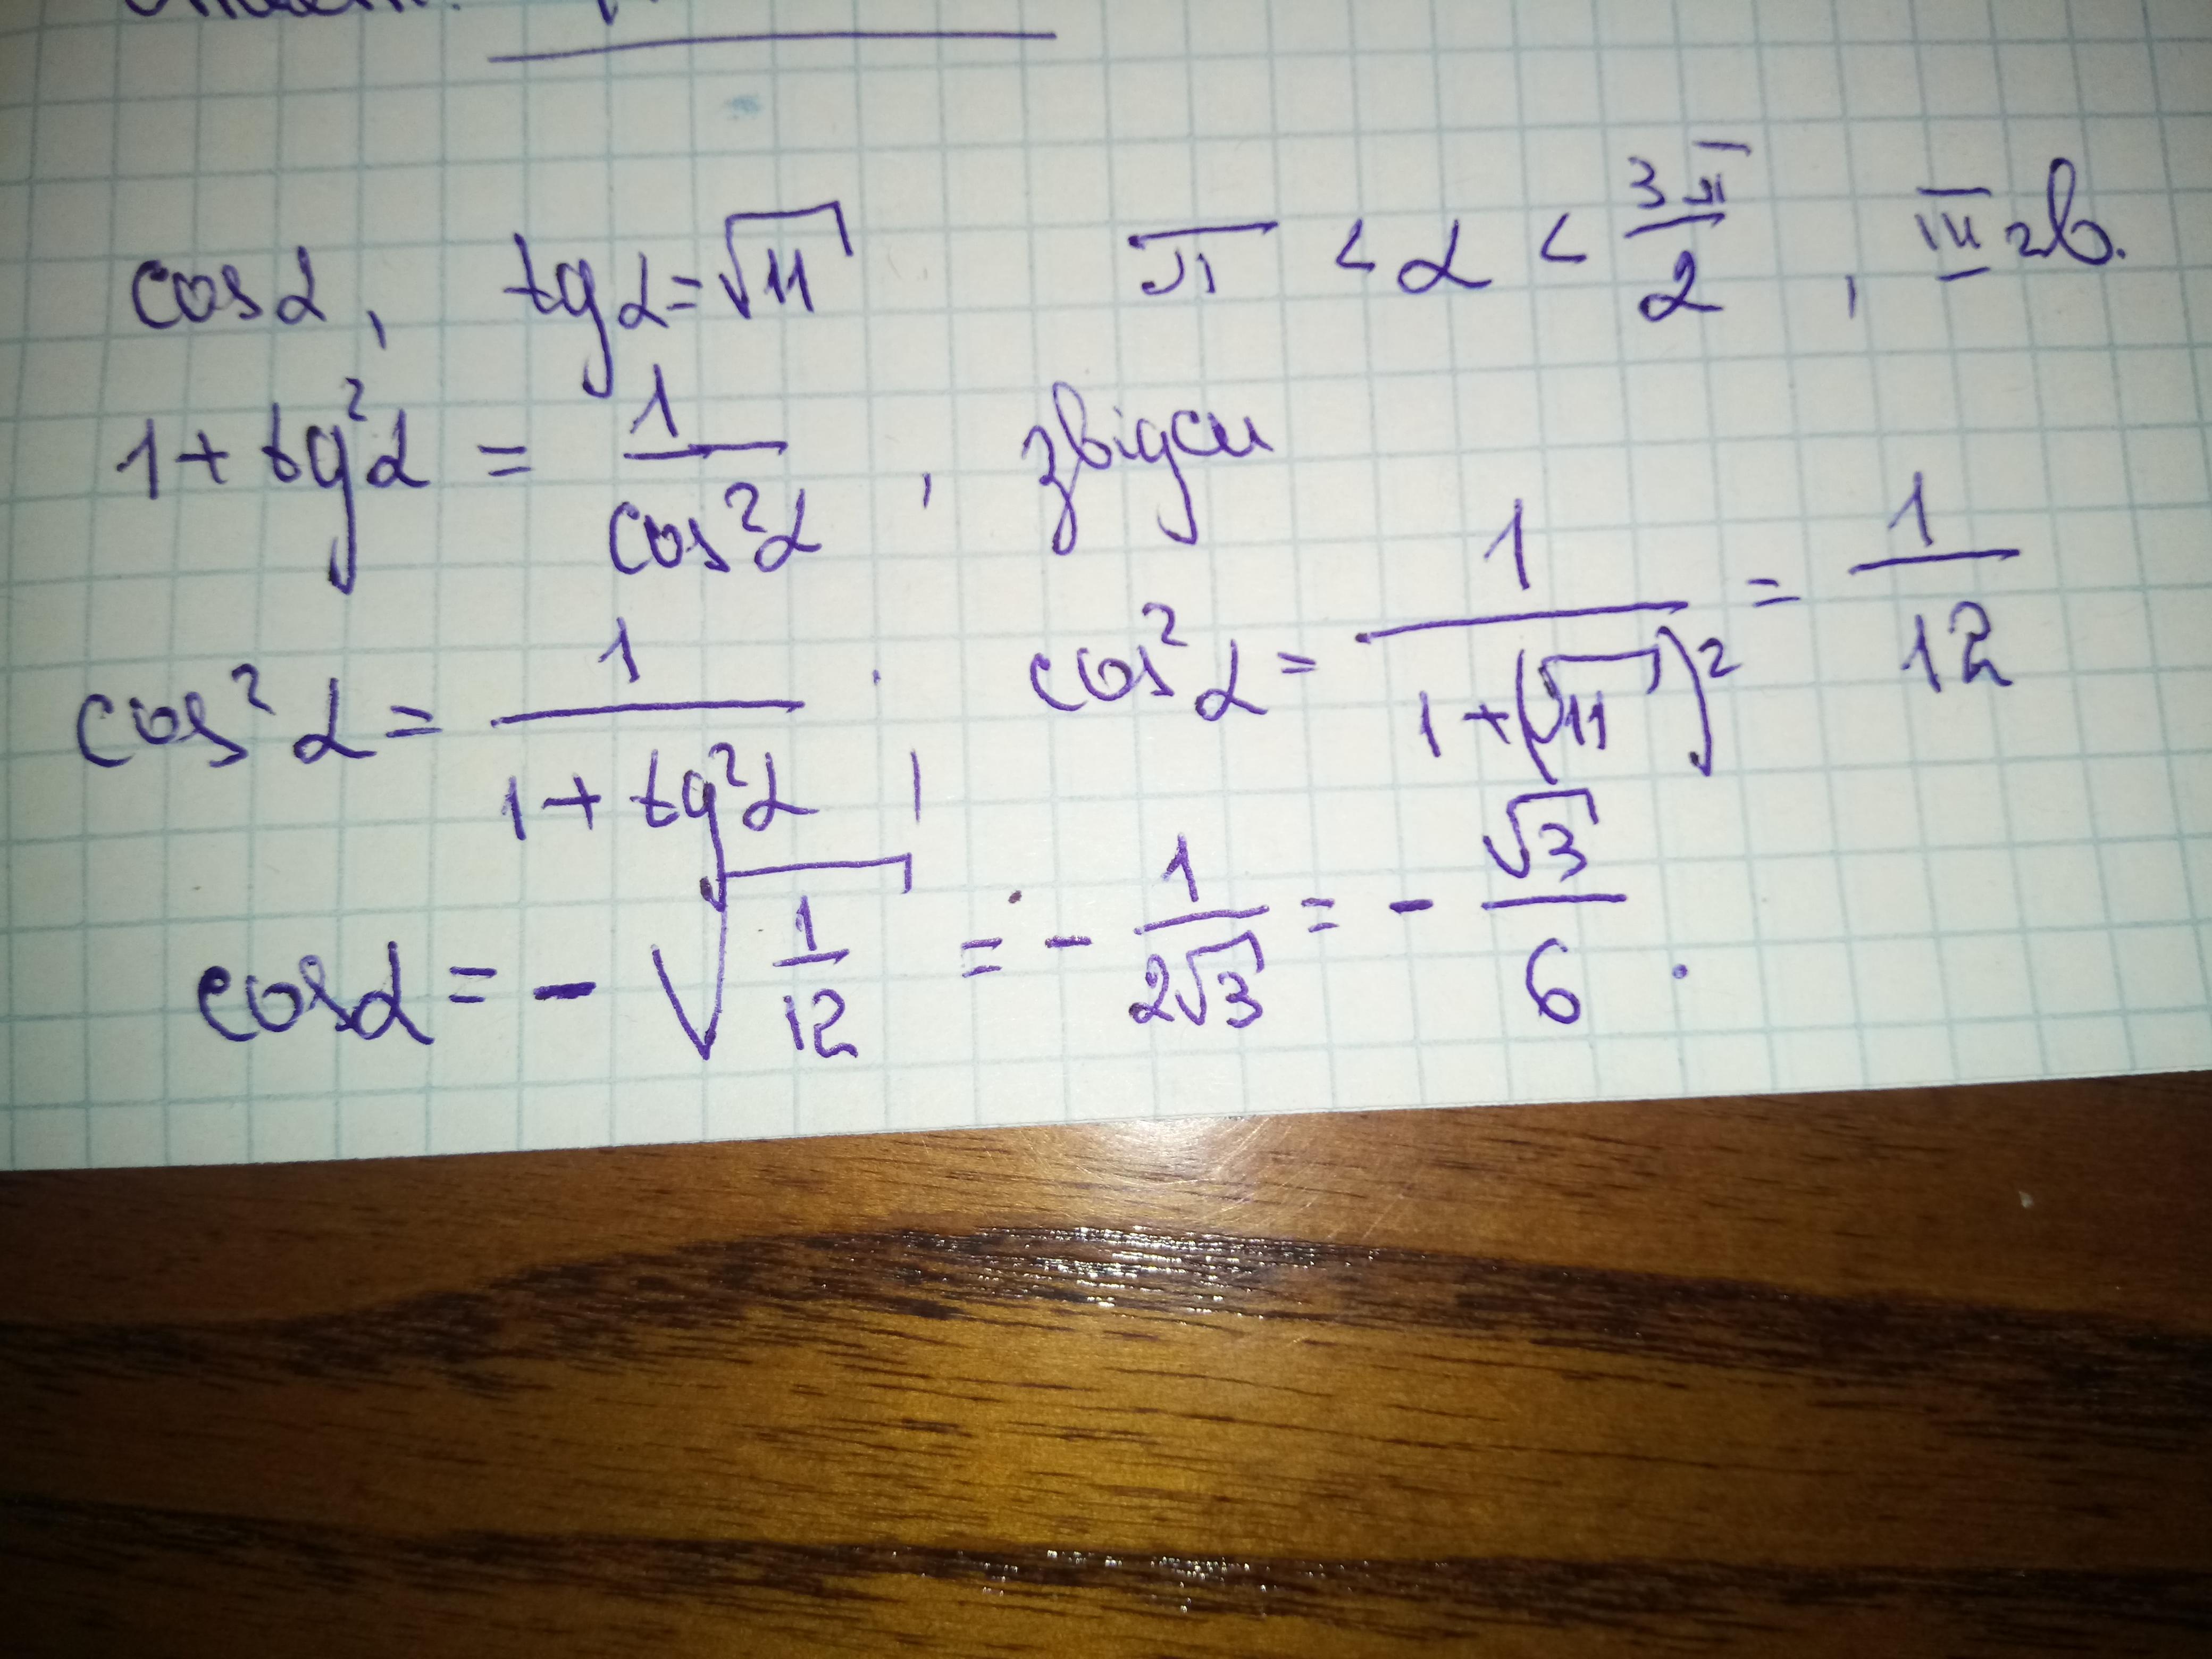 cos α, tg α = √11 π < α < 3π/2, III чв.
1 + tg²α = 1/cos²α, звідси
cos²α = 1/(1 + tg²α), cos²α = 1/(1 + (√11)²) = 1/12
cos α = - √(1/12) = - 1/(2√3) = - √3/6.